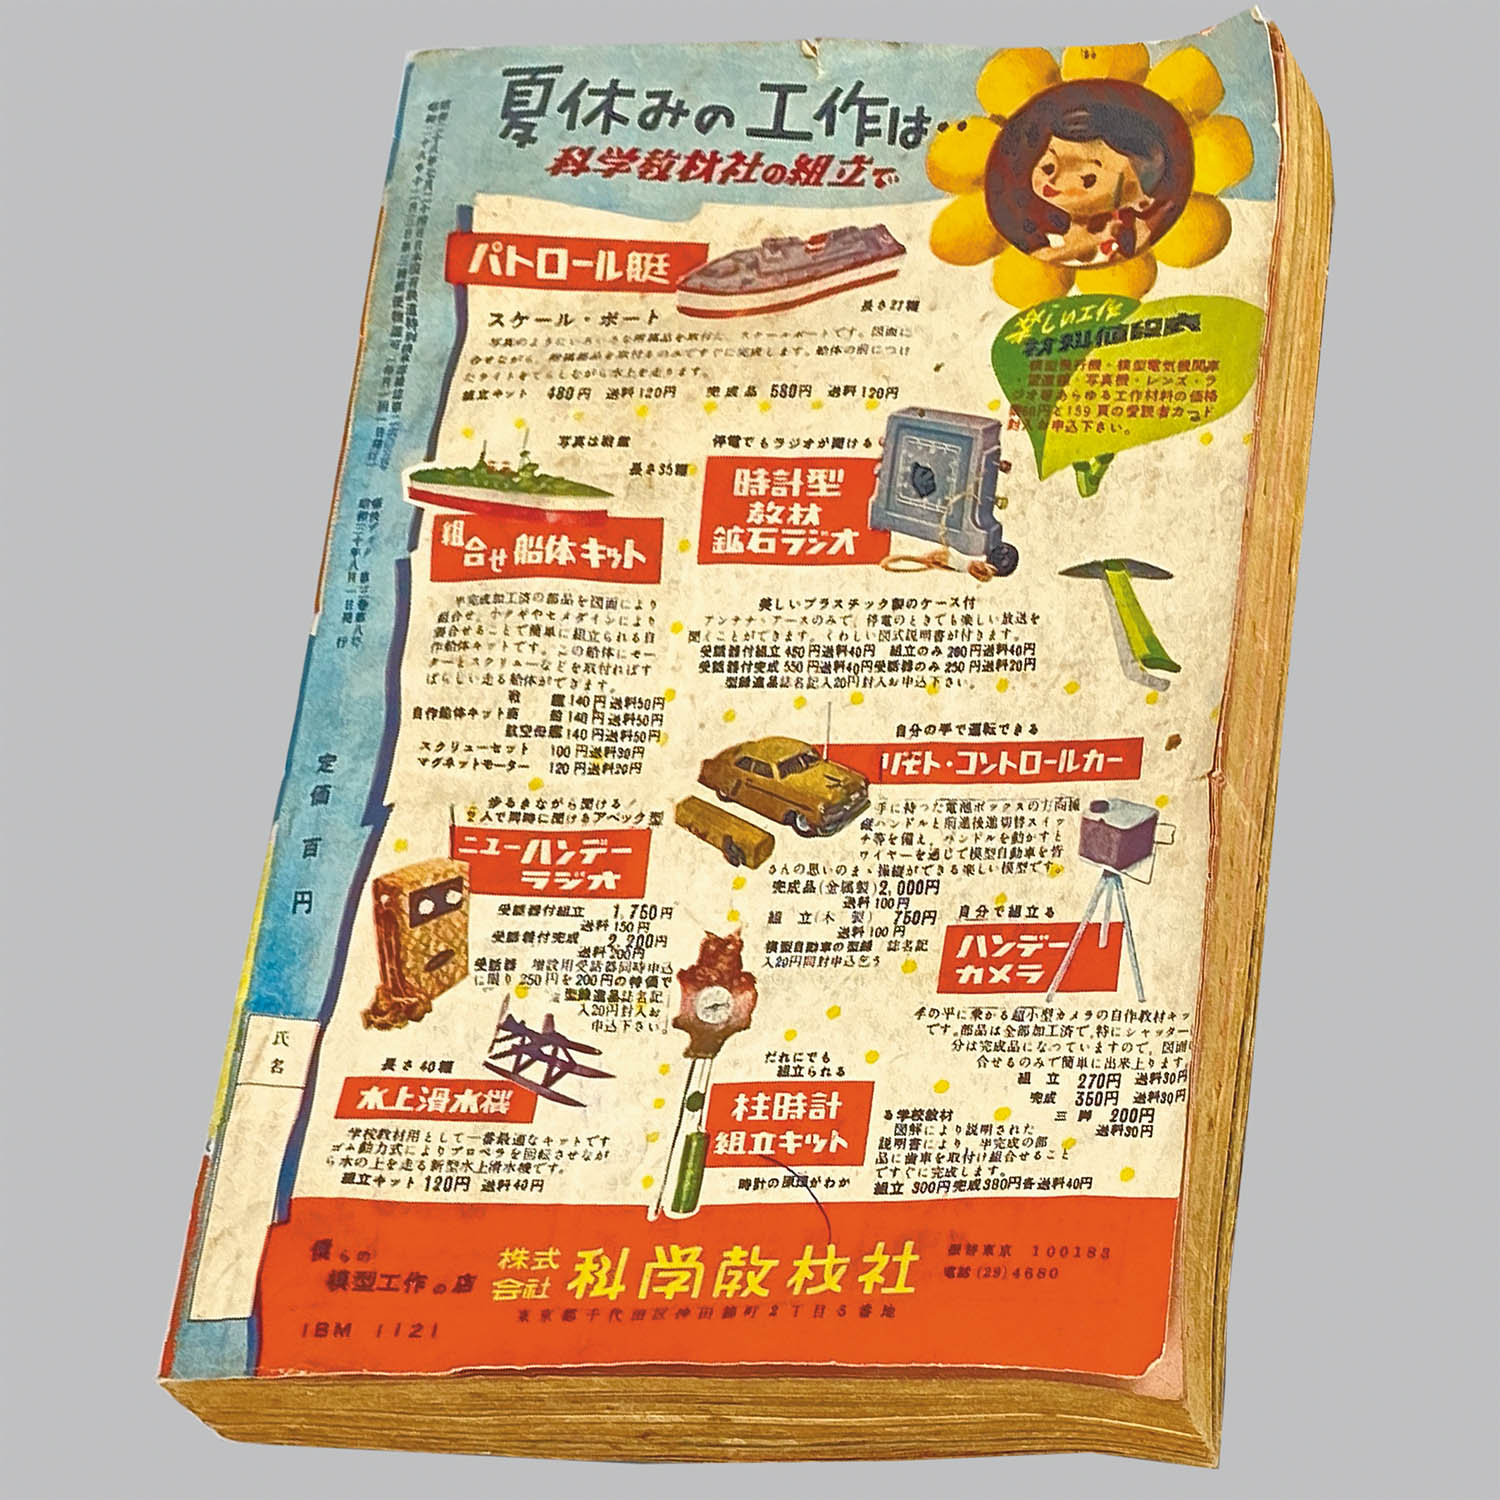 夏休みの工作は‥
科学教材社の組立で
パトロール艇
長さ27糎
スケール・ボート
写真のようにいろいろな附属品を取付た、スケールボートです。図面に
合せながら、附属部品を取付るのみですぐに完成します。船体の前につけ
たライトをてらしながら水上を走ります。
組立キット 480円 送料120円 完成品 580円 送料120円
模型飛行機・模型電気機関車
・望遠鏡・写真機・レンズ・ラ
ジオ等あらゆる工作材料の価格
表80円と189頁の愛読者カード
封入お申込下さい。
写真は戦艦
長さ35糎
組合せ 船体キット
半完成加工済の部品を図面により
組合せ、小クギやセメダインにより
接合せることで簡単に組立られる自
作船体キットです。この船体にモー
ターとスクリューなどを取付ればす
ばらしい走る船体ができます。
戦艦 140円 送料50円
自作船体キット商船 140円 送料50円
航空母艦 140円 送料50円
スクリューセット 100円 送料30円
マグネットモーター 120円 送料20円
停電でもラジオが聞ける
時計型
教材
鉱石ラジオ
美しいプラスチック製のケース付
アンテナ・アースのみで、停電のときでも楽しい放送を
聞くことができます。くわしい図式説明書が付きます。
受話器付組立 450円送料40円 組立のみ 200円送料40円
受話器付完成 550円送料40円受話器のみ 250円送料20円
型録進品誌名記入20円封入お申込下さい。
自分の手で運転できる
リモト・コントロールカー
手に持った電池ボックスの方向操
縦ハンドルと前進後進切替スイッ
チ等を備え、ハンドルを動かすと
ワイヤーを通じて模型自動車を皆
さんの思いのまゝ操縦ができる楽しい模型です。
完成品(金属製)2,000円
送料100円
組立(木製) 750円
送料100円
模型自動車の型録 誌名記
入20円同封申込乞う
歩るきながら聞ける!
2人で同時に聞けるアベック型
ニューハンデー
ラジオ
受話器付組立 1,750円
送料150円
受話器付完成 2,200円
送料200円
受話器 増設用受話器同時申込
に限り250円を200円の特価で
型録進品誌名記
入20円封入お
申込下さい。
自分で組立る
ハンデー
カメラ
手の平に乗かる超小型カメラの自作教材キッ
です。部品は全部加工済で、特にシャッター
分は完成品になっていますので、図面
合せるのみで簡単に出来上ります
組立 270円 送料30円
完成 350円 送料30円
三脚 200円
送料30円
長さ40糎
水上滑水機
学校教材用として一番最適なキットです
ゴム動力式によりプロペラを回転させなが
ら水の上を走る新型水上滑水機です。
組立キット 120円 送料40円
だれにでも
組立られる
柱時計
組立キット
時計の原理がわか
る学校教材
図解により説明された
説明書により、半完成の部
品に歯車を取付け組合せること
ですぐに完成します。
組立 300円完成380円各送料40円
僕らの
模型工作の店
株式会社 科学教材社
振替東京 100183
電話(29)4680
東京都千代田区神田錦町2丁目5番地
IBM 1121
定価百円
氏名
昭和三十年八月一日発行